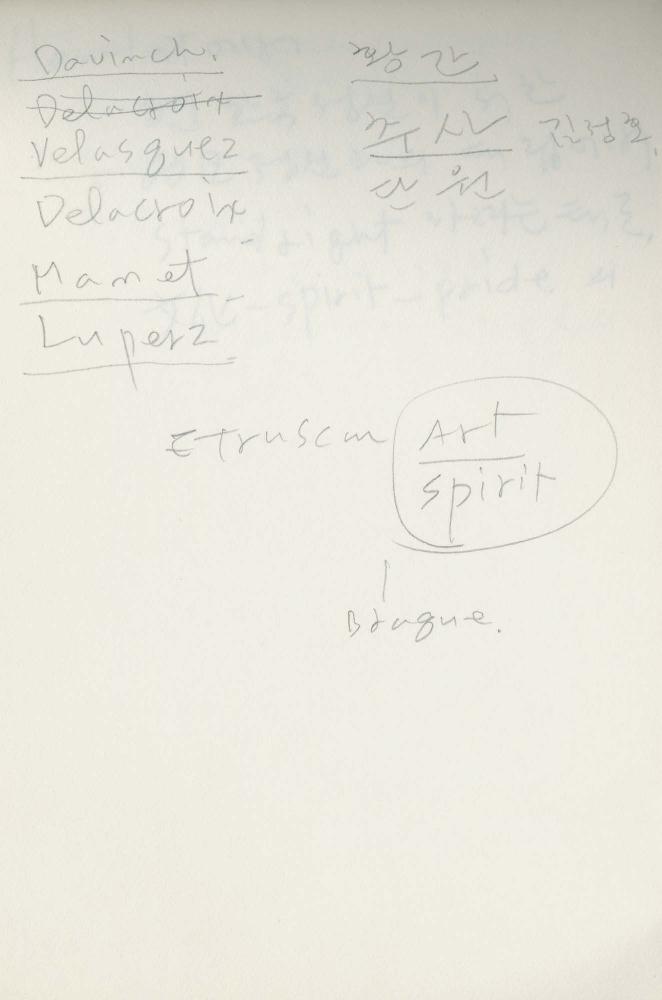 Davinch.
Delacroix
Velasquez
Delacroix
Manet
Luperz
황간
추사 김정호.
단원
Etruscan Art
spirit
Braque.